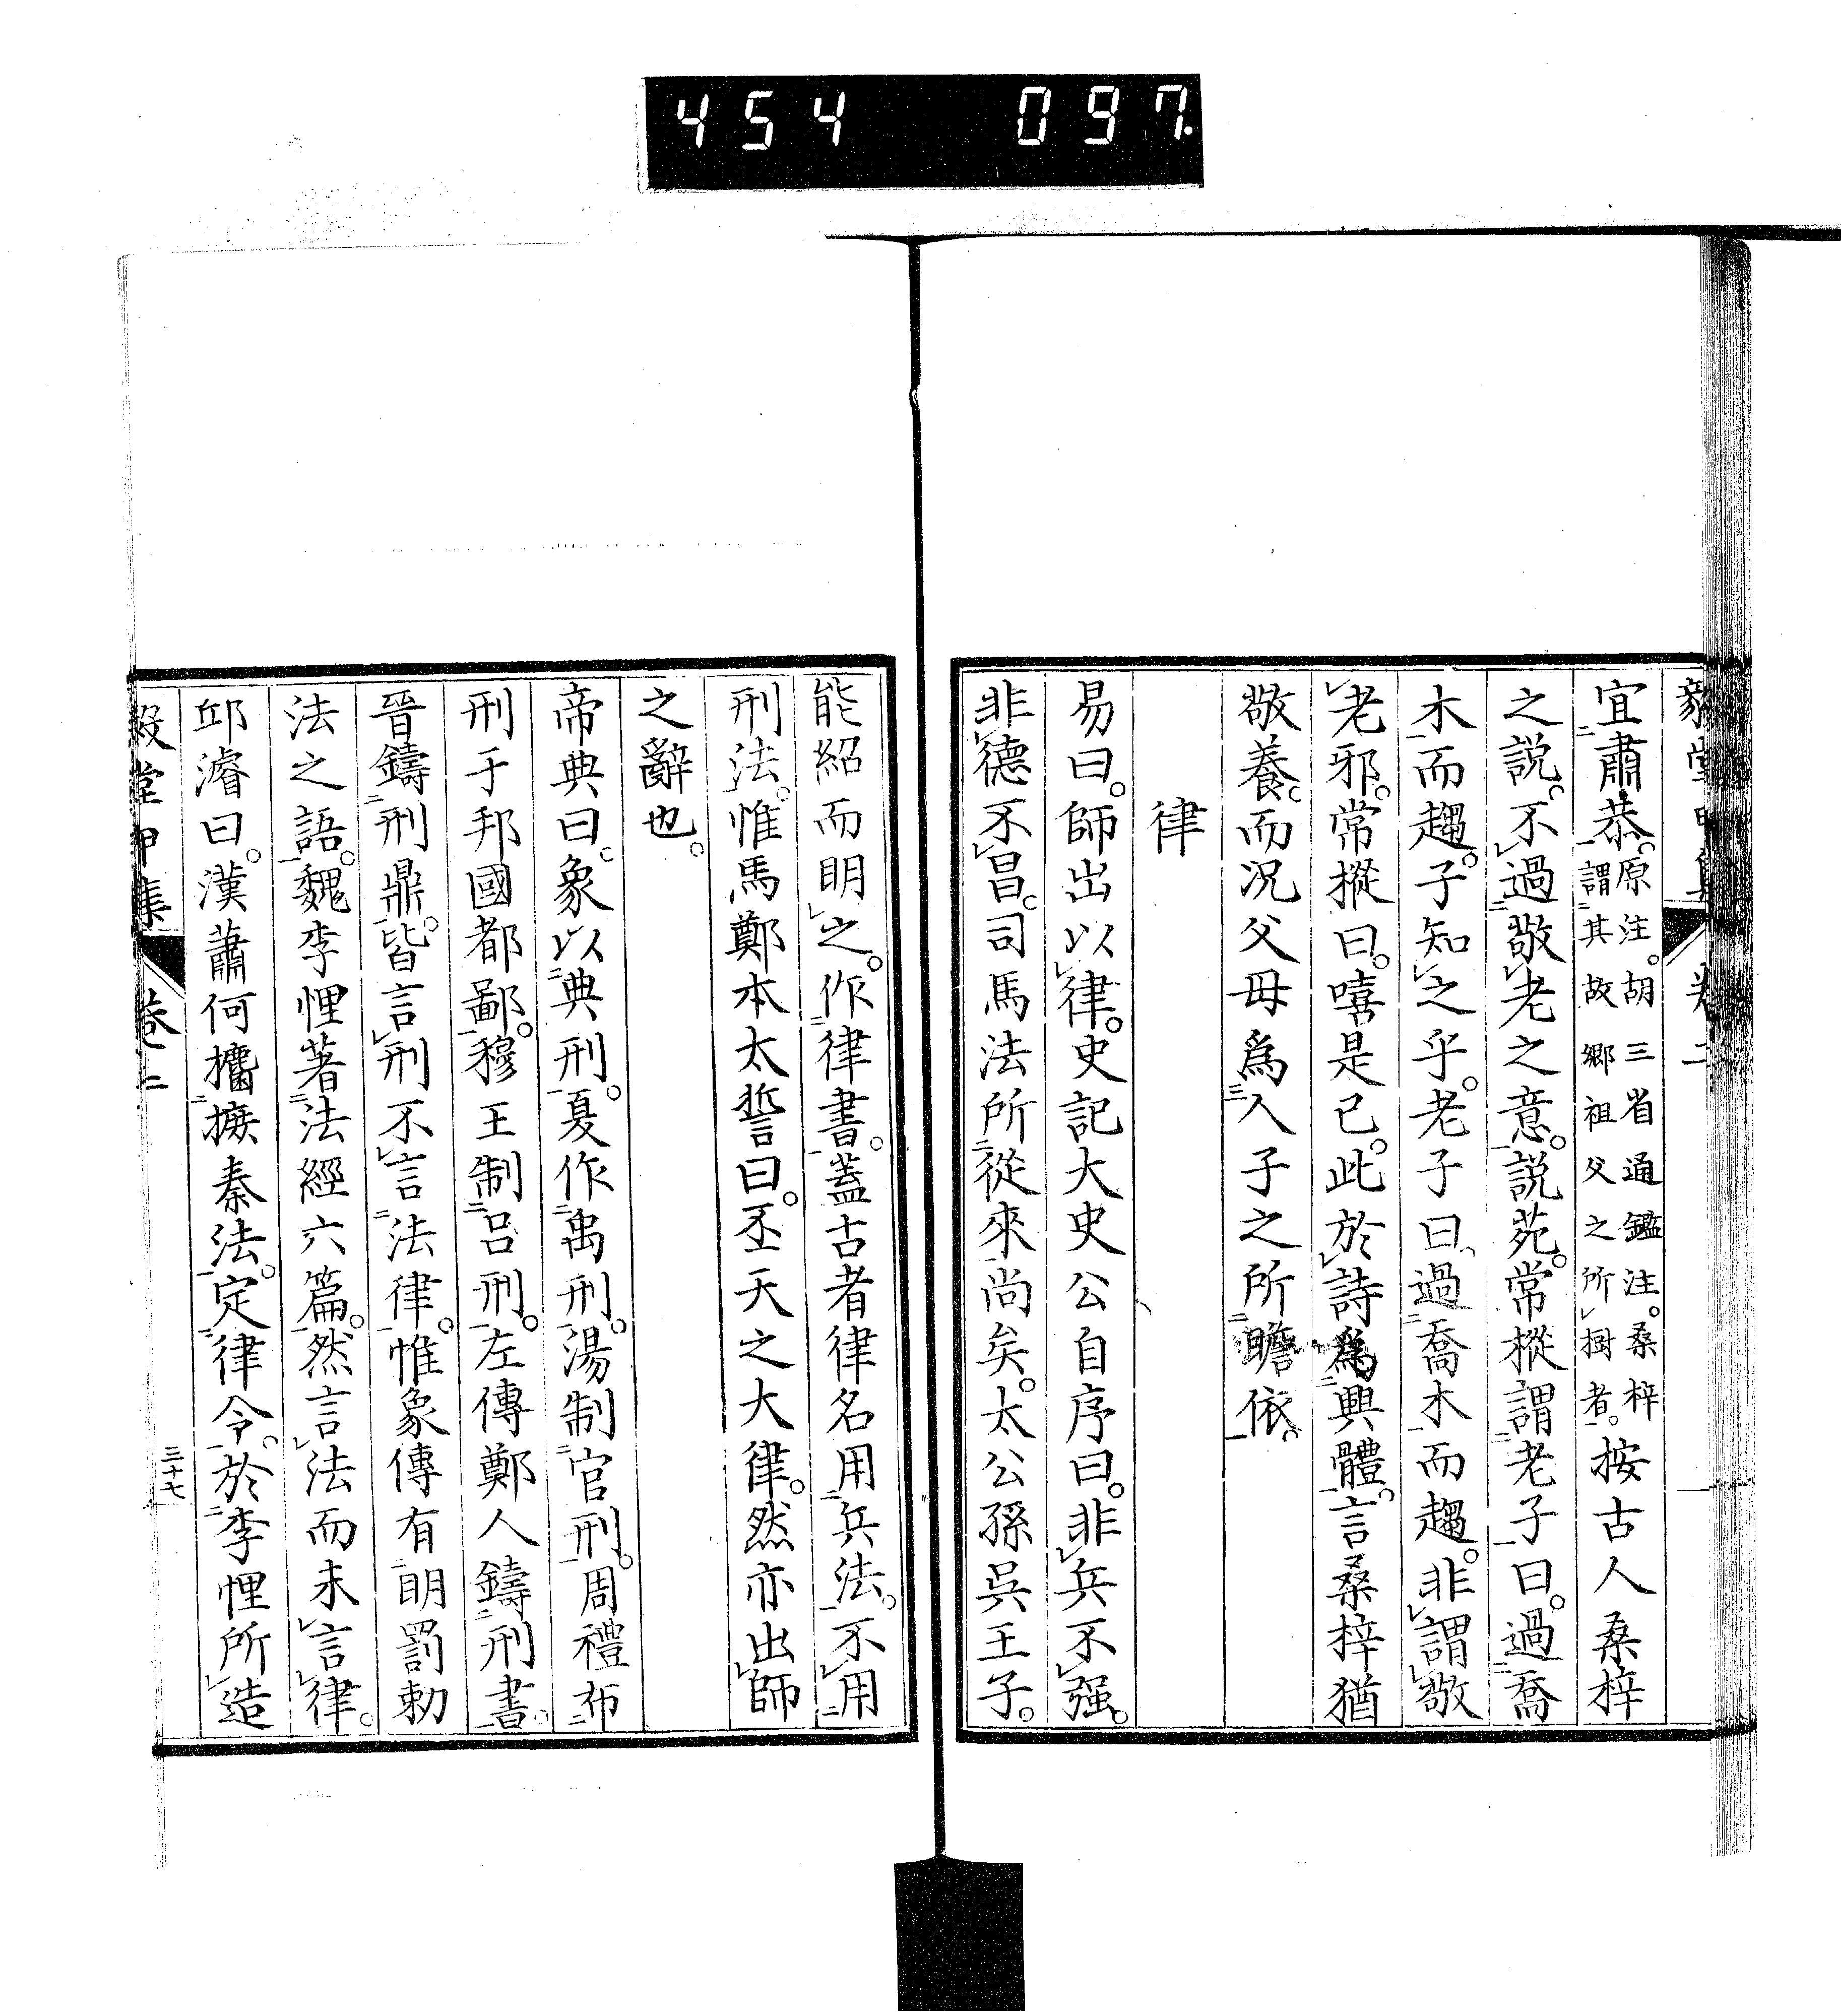 454 097.
宜肅恭。原注。胡三省通鑑注。桑梓謂其故鄉祖父之所樹者。按古人桑梓
之説。不過敬老之意。説苑。常摐謂老子曰。過喬
木而趨。子知之乎。老子曰、過喬木而趨。非謂敬
老邪。常摐曰。嘻是已。此於詩爲興體。言桑梓猶
敬養。而況父母爲人子之所瞻依。
律
易曰。師出以律。史記大史公自序曰。非兵不强。
非德不昌。司馬法所從來尚矣。太公孫吳王子。
能紹而明之。作律書。蓋古者律名用兵法。不用
刑法。惟馬鄭本太誓曰。丕天之大律。然亦出師
之辭也。
帝典曰。象以典刑。夏作禹刑。湯制官刑。周禮布
刑于邦國都鄙。穆王制呂刑。左傳鄭人鑄刑書。
晉鑄刑鼎。皆言刑不言法律。惟象傳有明罰勅
法之語。魏李悝著法經六篇。然言法而未言律。
邱濬曰。漢蕭何攟摭秦法。定律令。於李悝所造
毅堂甲集
卷二
三十七